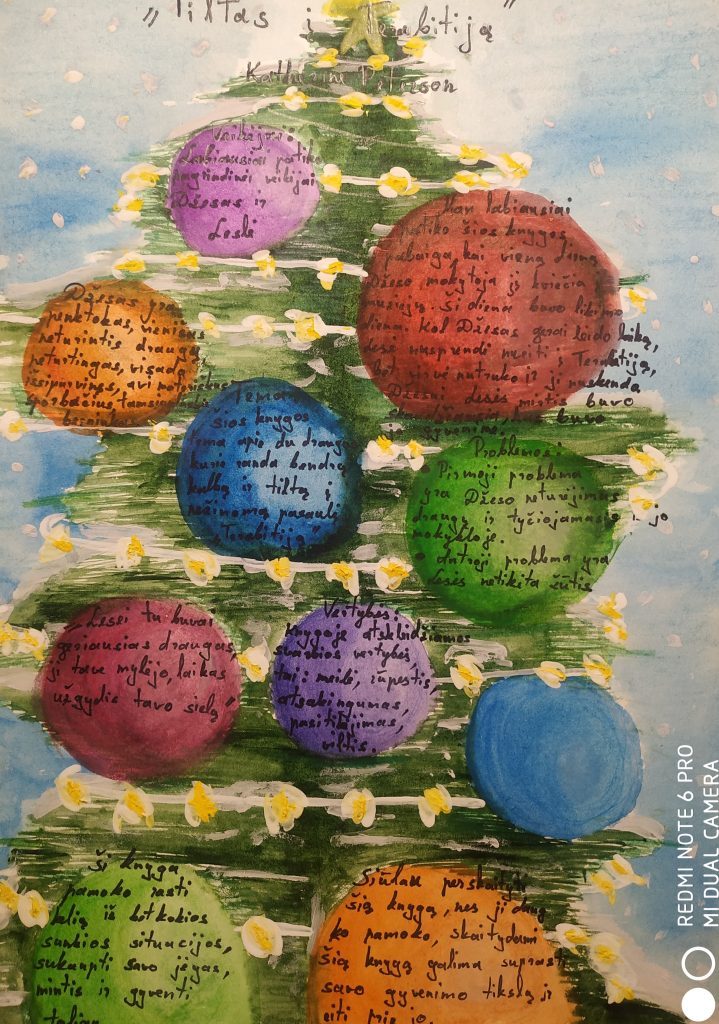 „Tiltas į Terabitiją"
Katherine Paterson
Veikėjai:
Labiausiai patiko
pagrindinė veikėjai
Džesas ir
Leslė
Man labiausiai
patiko šios knygos
pabaiga, kai vieną dieną
Džeso mokytoja jį kviečia
muziejų. Ši diena buvo likimo
diena. Kol Džesas gerai leido laiką,
Leslė nusprendė nueiti į Terabitiją,
bet virvė nutruko ir ji nuskendo
Džesui Leslės mirtis buvo
buvo
jo gyvenime.
Džesas yra
penktokas, vienišas
neturintis draugų,
neturtingas, visada
išsipurvinęs, avi
sportbačius, tamsiaplaukis
berniukas
Tema:
Šios knygos
tema apie du draugus
kurie randa bendrą
kalbą ir tiltą į
nežinomą pasaulį
„Terabitiją"
Problemos:
• Pirmoji problema
yra Džeso neturėjimas
draugų ir tyčiojamasi iš jo
mokykloje.
• Antroji problema yra
Leslės netikėta žūtis
„Lesli tu buvai
geriausias draugas,
ji tave mylėjo, laikas
užgydis tavo sielą"
Vertybės:
Knygoje atskleidžiamos
svarbios vertybės,
tai: meilė, rūpestis,
atsakingumas,
pasitikėjimas,
viltis.
Ši knyga
pamoko rasti
kelią iš bet kokios
sunkios situacijos,
sukaupti savo jėgas,
mintis ir gyventi
toliau.
Siūlau perskaityti
šią knygą, nes ji daug
ko pamoko, skaitydami
šią knygą galima suprasti
savo gyvenimo tikslą ir
eiti prie jo.
REDMI NOTE 6 PRO
MI DUAL CAMERA